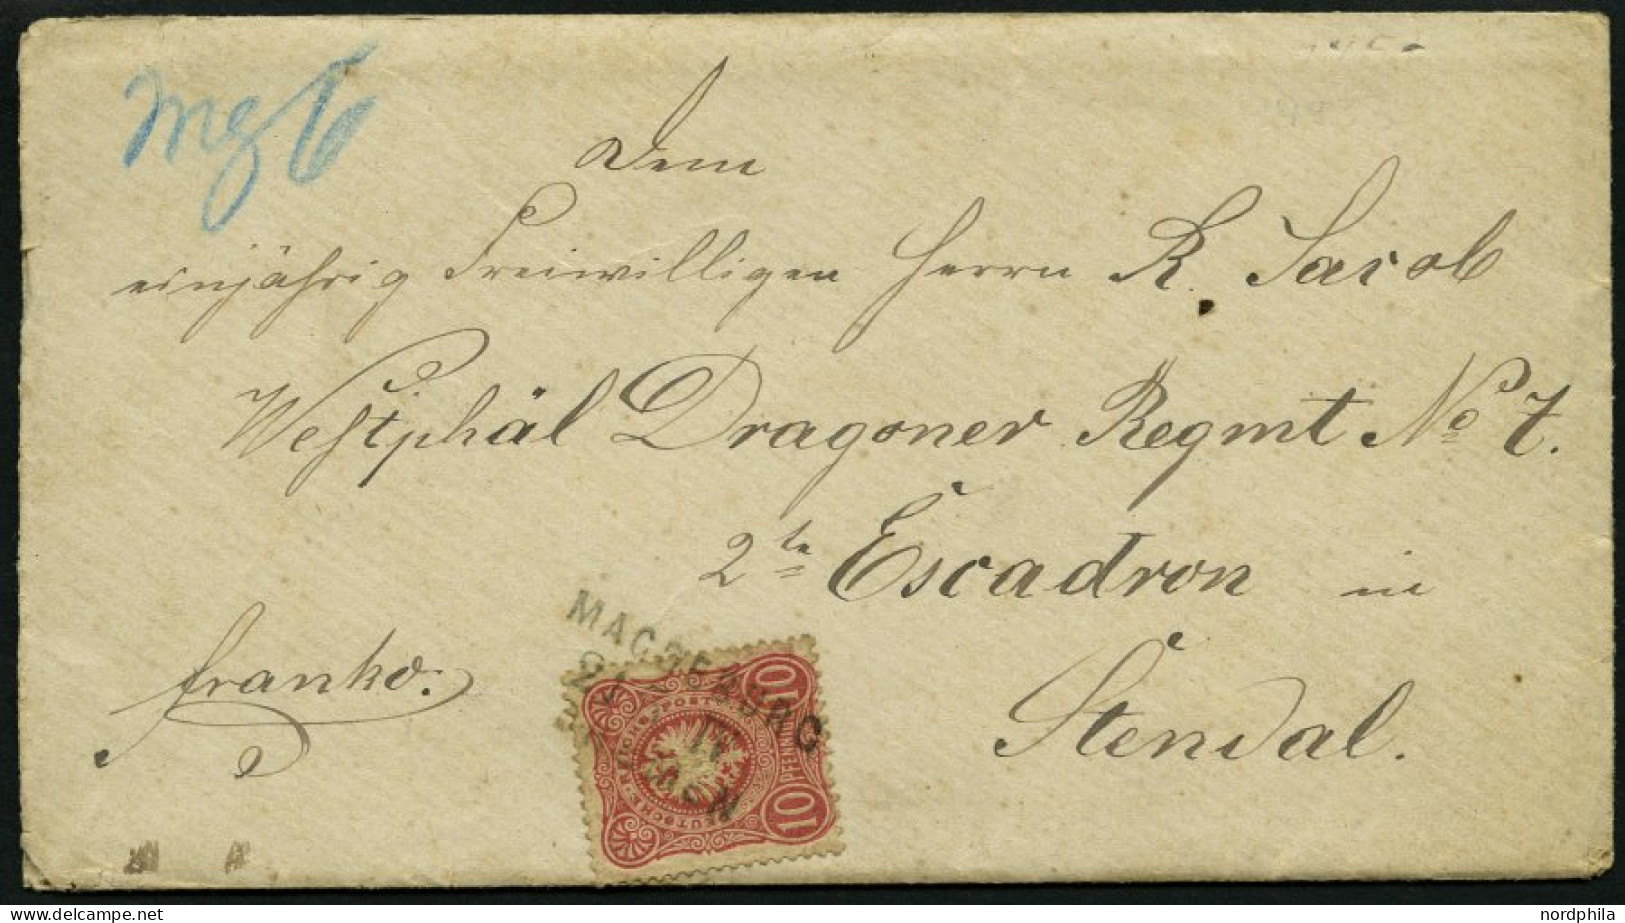 Dem
einjährig Freiwilligen Herrn R. Jacob
Westphäl Dragoner Regmt No 7.
2te Escadron in
Stendal.
franko.
MAGDEBURG
10
10
PFENNIG
nordphila